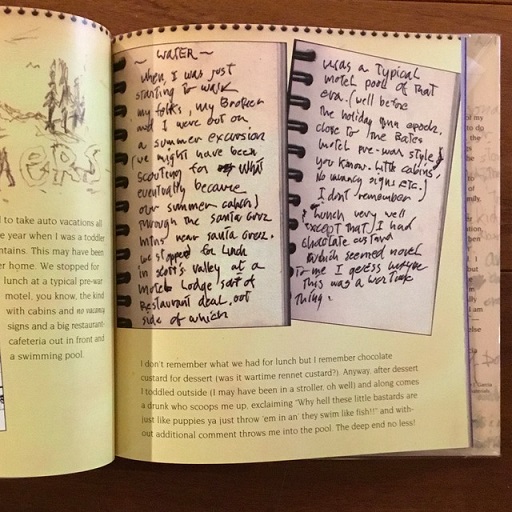 ERS
to take auto vacations all
e year when I was a toddler
ntains. This may have been
er home. We stopped for
lunch at a typical pre-war
motel, you know, the kind
with cabins and no vacancy
signs and a big restaurant-
cafeteria out in front and
a swimming pool.
~ WATER ~
when, I was just
starting to walk
my folks, my Brother
and I were out on
a summer excursion
(we might have been
scouting for what
eventually became
our summer cabin)
through the santa Cruz
mtns near santa Cruz.
we stopped for lunch
in Scott's valley at a
motel Lodge sort of
Restaurant deal, out
side of which
was a typical
motel pool of that
era. (well before
the holiday Inn epoch.
close to the Bates
motel pre-war style,
you know. little cabins,
No vacancy signs etc.)
I dont remember
lunch very well
except that I had
chocolate custard
which seemed novel
to me I guess maybe
this was a wartime
thing.
I don't remember what we had for lunch but I remember chocolate
custard for dessert (was it wartime rennet custard?). Anyway, after dessert
I toddled outside (I may have been in a stroller, oh well) and along comes
a drunk who scoops me up, exclaiming "Why hell these little bastards are
just like puppies ya just throw 'em in an' they swim like fish!!" and with-
out additional comment throws me into the pool. The deep end no less!